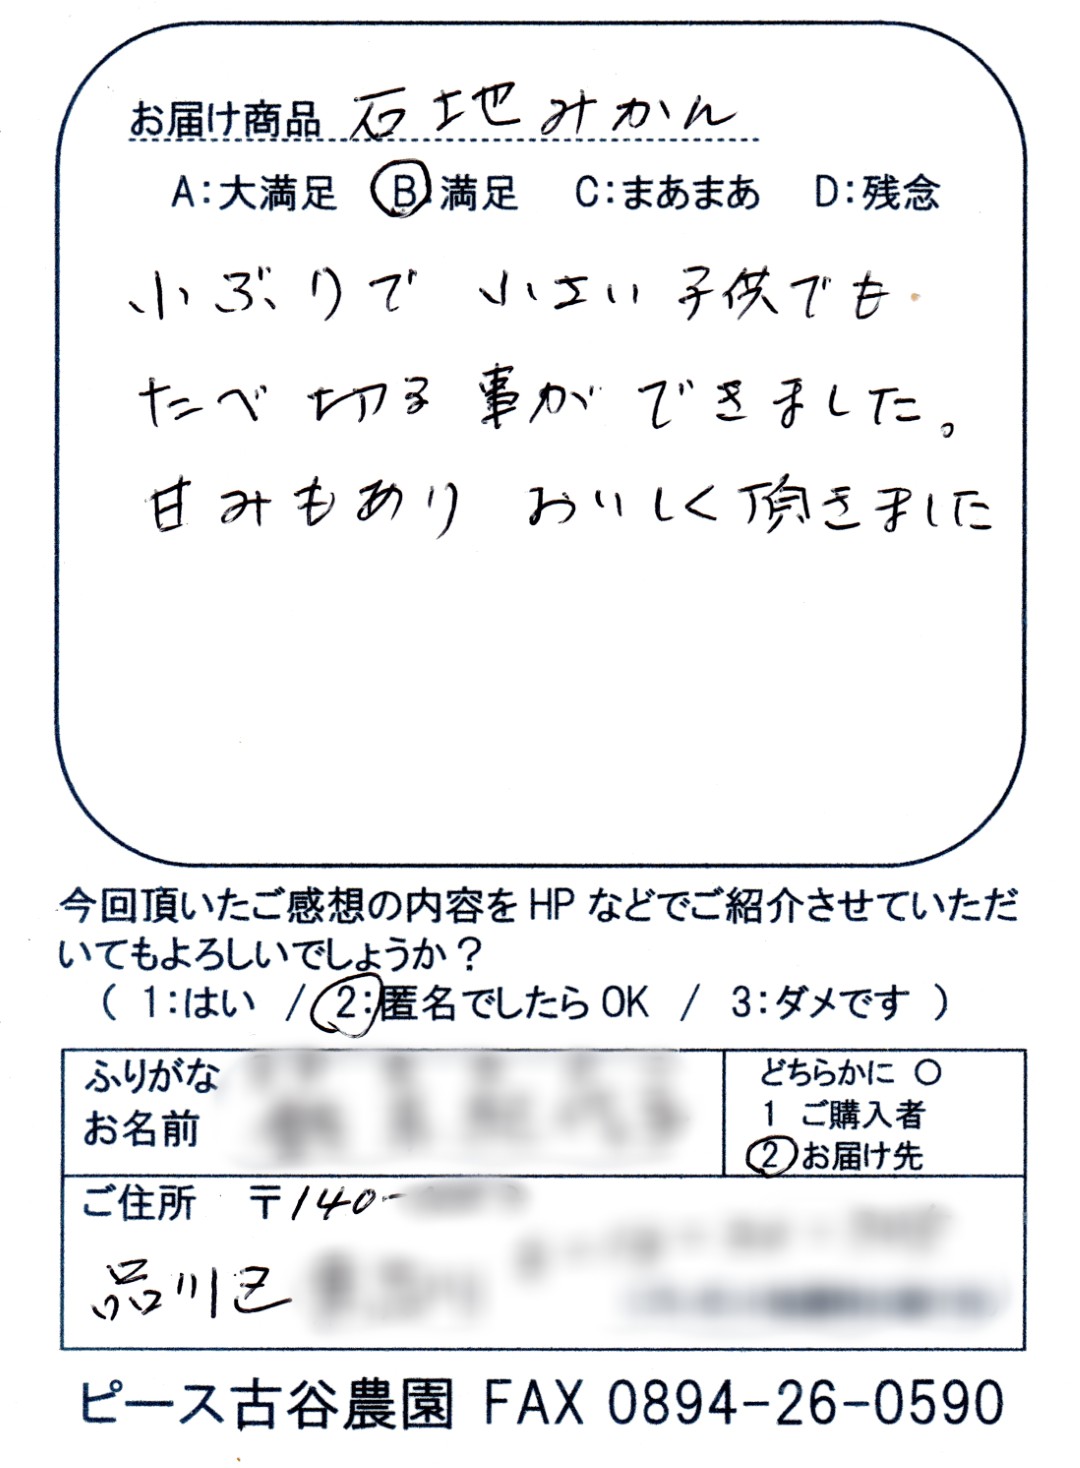 お届け商品 石地みかん
A:大満足 B:満足 C:まあまあ D:残念
小ぶりで 小さい子供でも
たべ切る事ができました。
甘みもあり おいしく頂きました
今回頂いたご感想の内容をHPなどでご紹介させていただ
いてもよろしいでしょうか？
( 1:はい / 2:匿名でしたらOK / 3:ダメです )
ふりがな
お名前
どちらかに ○
1 ご購入者
2 お届け先
ご住所 〒140-
品川区
ピース古谷農園 FAX 0894-26-0590